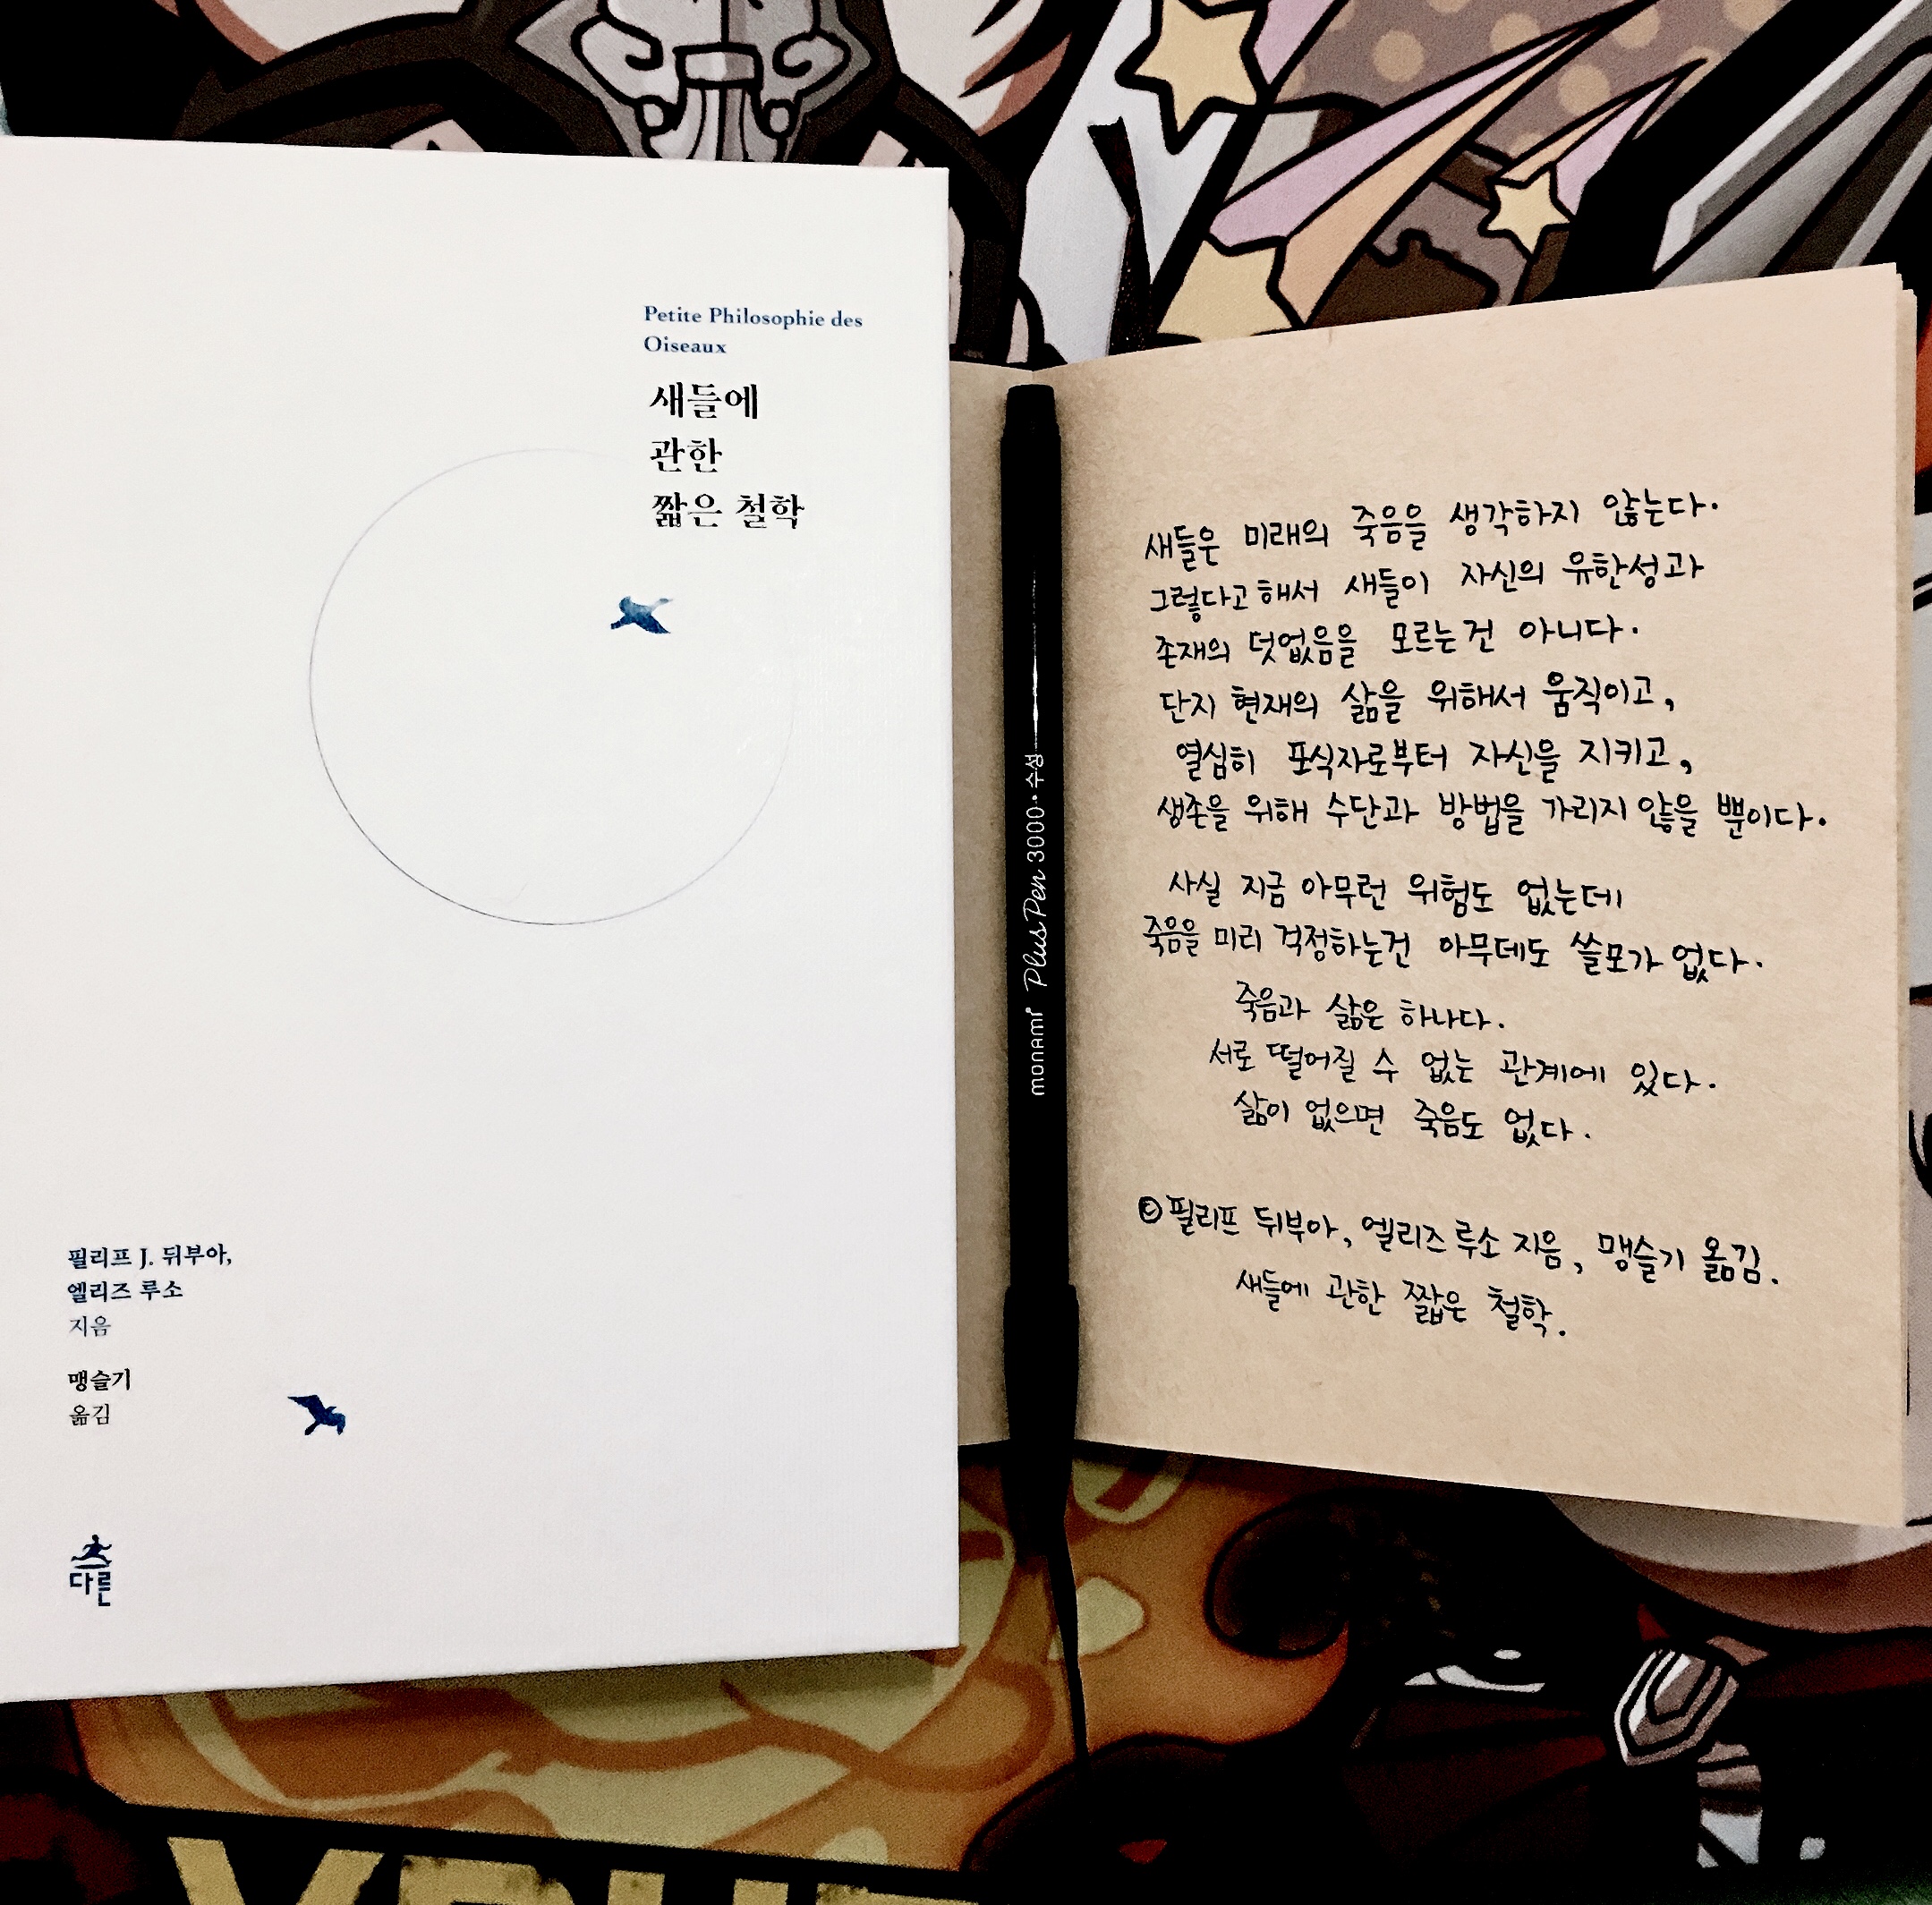 Petite Philosophie des
Oiseaux
새들에
관한
짧은 철학
필리프 J. 뒤부아,
엘리즈 루소
지음
맹슬기
옮김
다른
monami Plus Pen 3000 • 수성
새들은 미래의 죽음을 생각하지 않는다.
그렇다고 해서 새들이 자신의 유한성과
존재의 덧없음을 모르는 건 아니다.
단지 현재의 삶을 위해서 움직이고,
열심히 포식자로부터 자신을 지키고,
생존을 위해 수단과 방법을 가리지 않을 뿐이다.
사실 지금 아무런 위험도 없는데
죽음을 미리 걱정하는건 아무데도 쓸모가 없다.
죽음과 삶은 하나다.
서로 떨어질 수 없는 관계에 있다.
삶이 없으면 죽음도 없다.
© 필리프 뒤부아, 엘리즈 루소 지음, 맹슬기 옮김.
새들에 관한 짧은 철학.